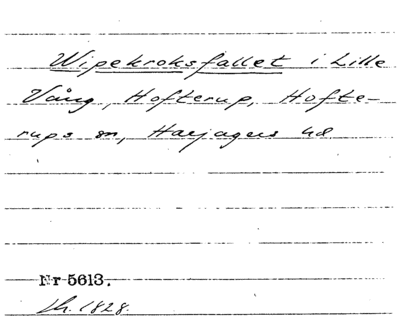 Wipekroksfallet i Lille
Vång, Hofterup, Hofte-
rups sn, Harjagers hd
Nr 5613.
Lh. 1828.